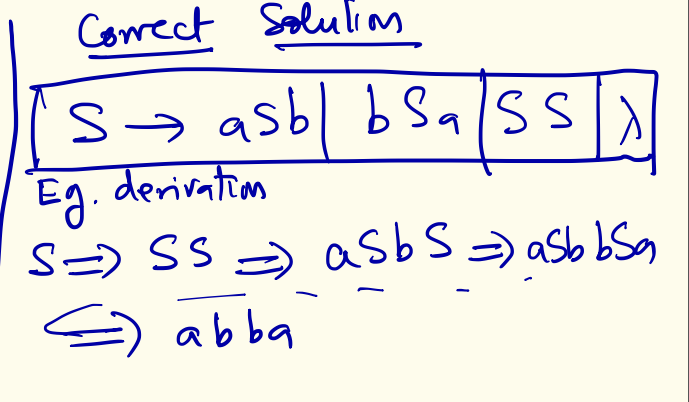 Correct Solution
S → aSb | bSa | SS | λ
Eg. derivation
S ⇒ SS ⇒ aSbS ⇒ aSbbSa
⇒ abba